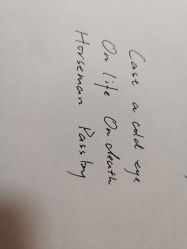 Cast a cold eye
On life On death
Horseman Pass by